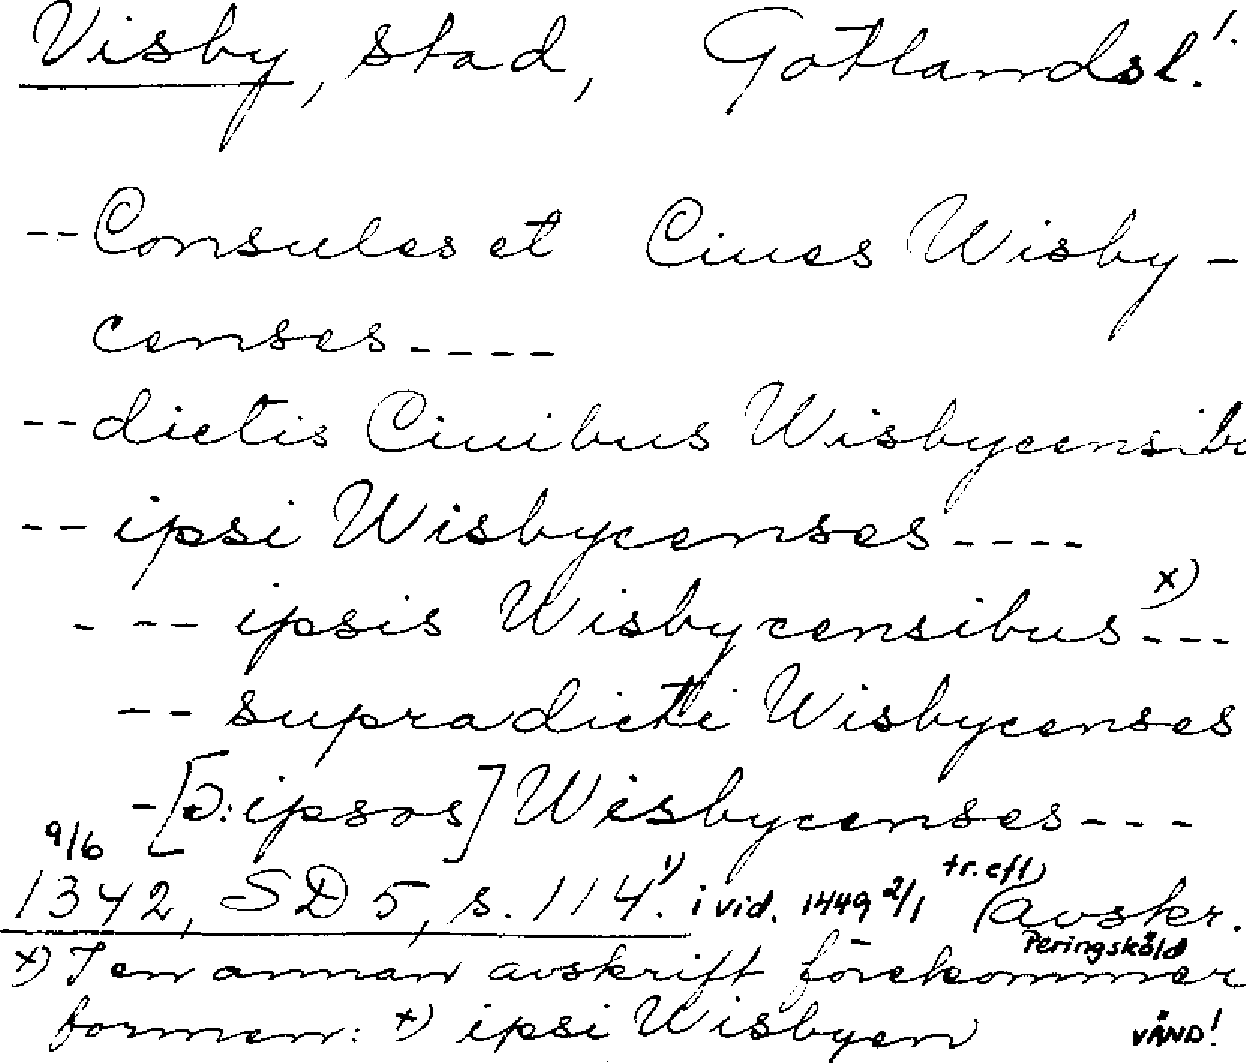 Visby, stad, Gotlandsl.!
--Consules et Ciues Wisby-
censes----
--dictis Ciuibus Wisbycensib
--ipsi Wisbycenses----
---ipsis Wisbycensibus x)---
--supradicti Wisbycenses
-[ɔ: ipsos] Wisbycenses---
9/6
1342, SD 5, s. 114.1) i vid. 1449 2/1 tr. eft. avskr.
Peringsköld
x) I en annan avskrift förekommer
formen: x) ipsi Wisbycen
VÄND!